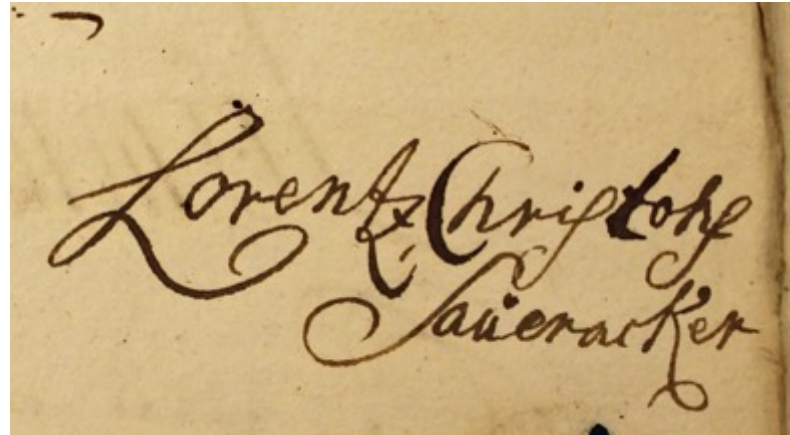 Lorentz Christoph
Saüeracker